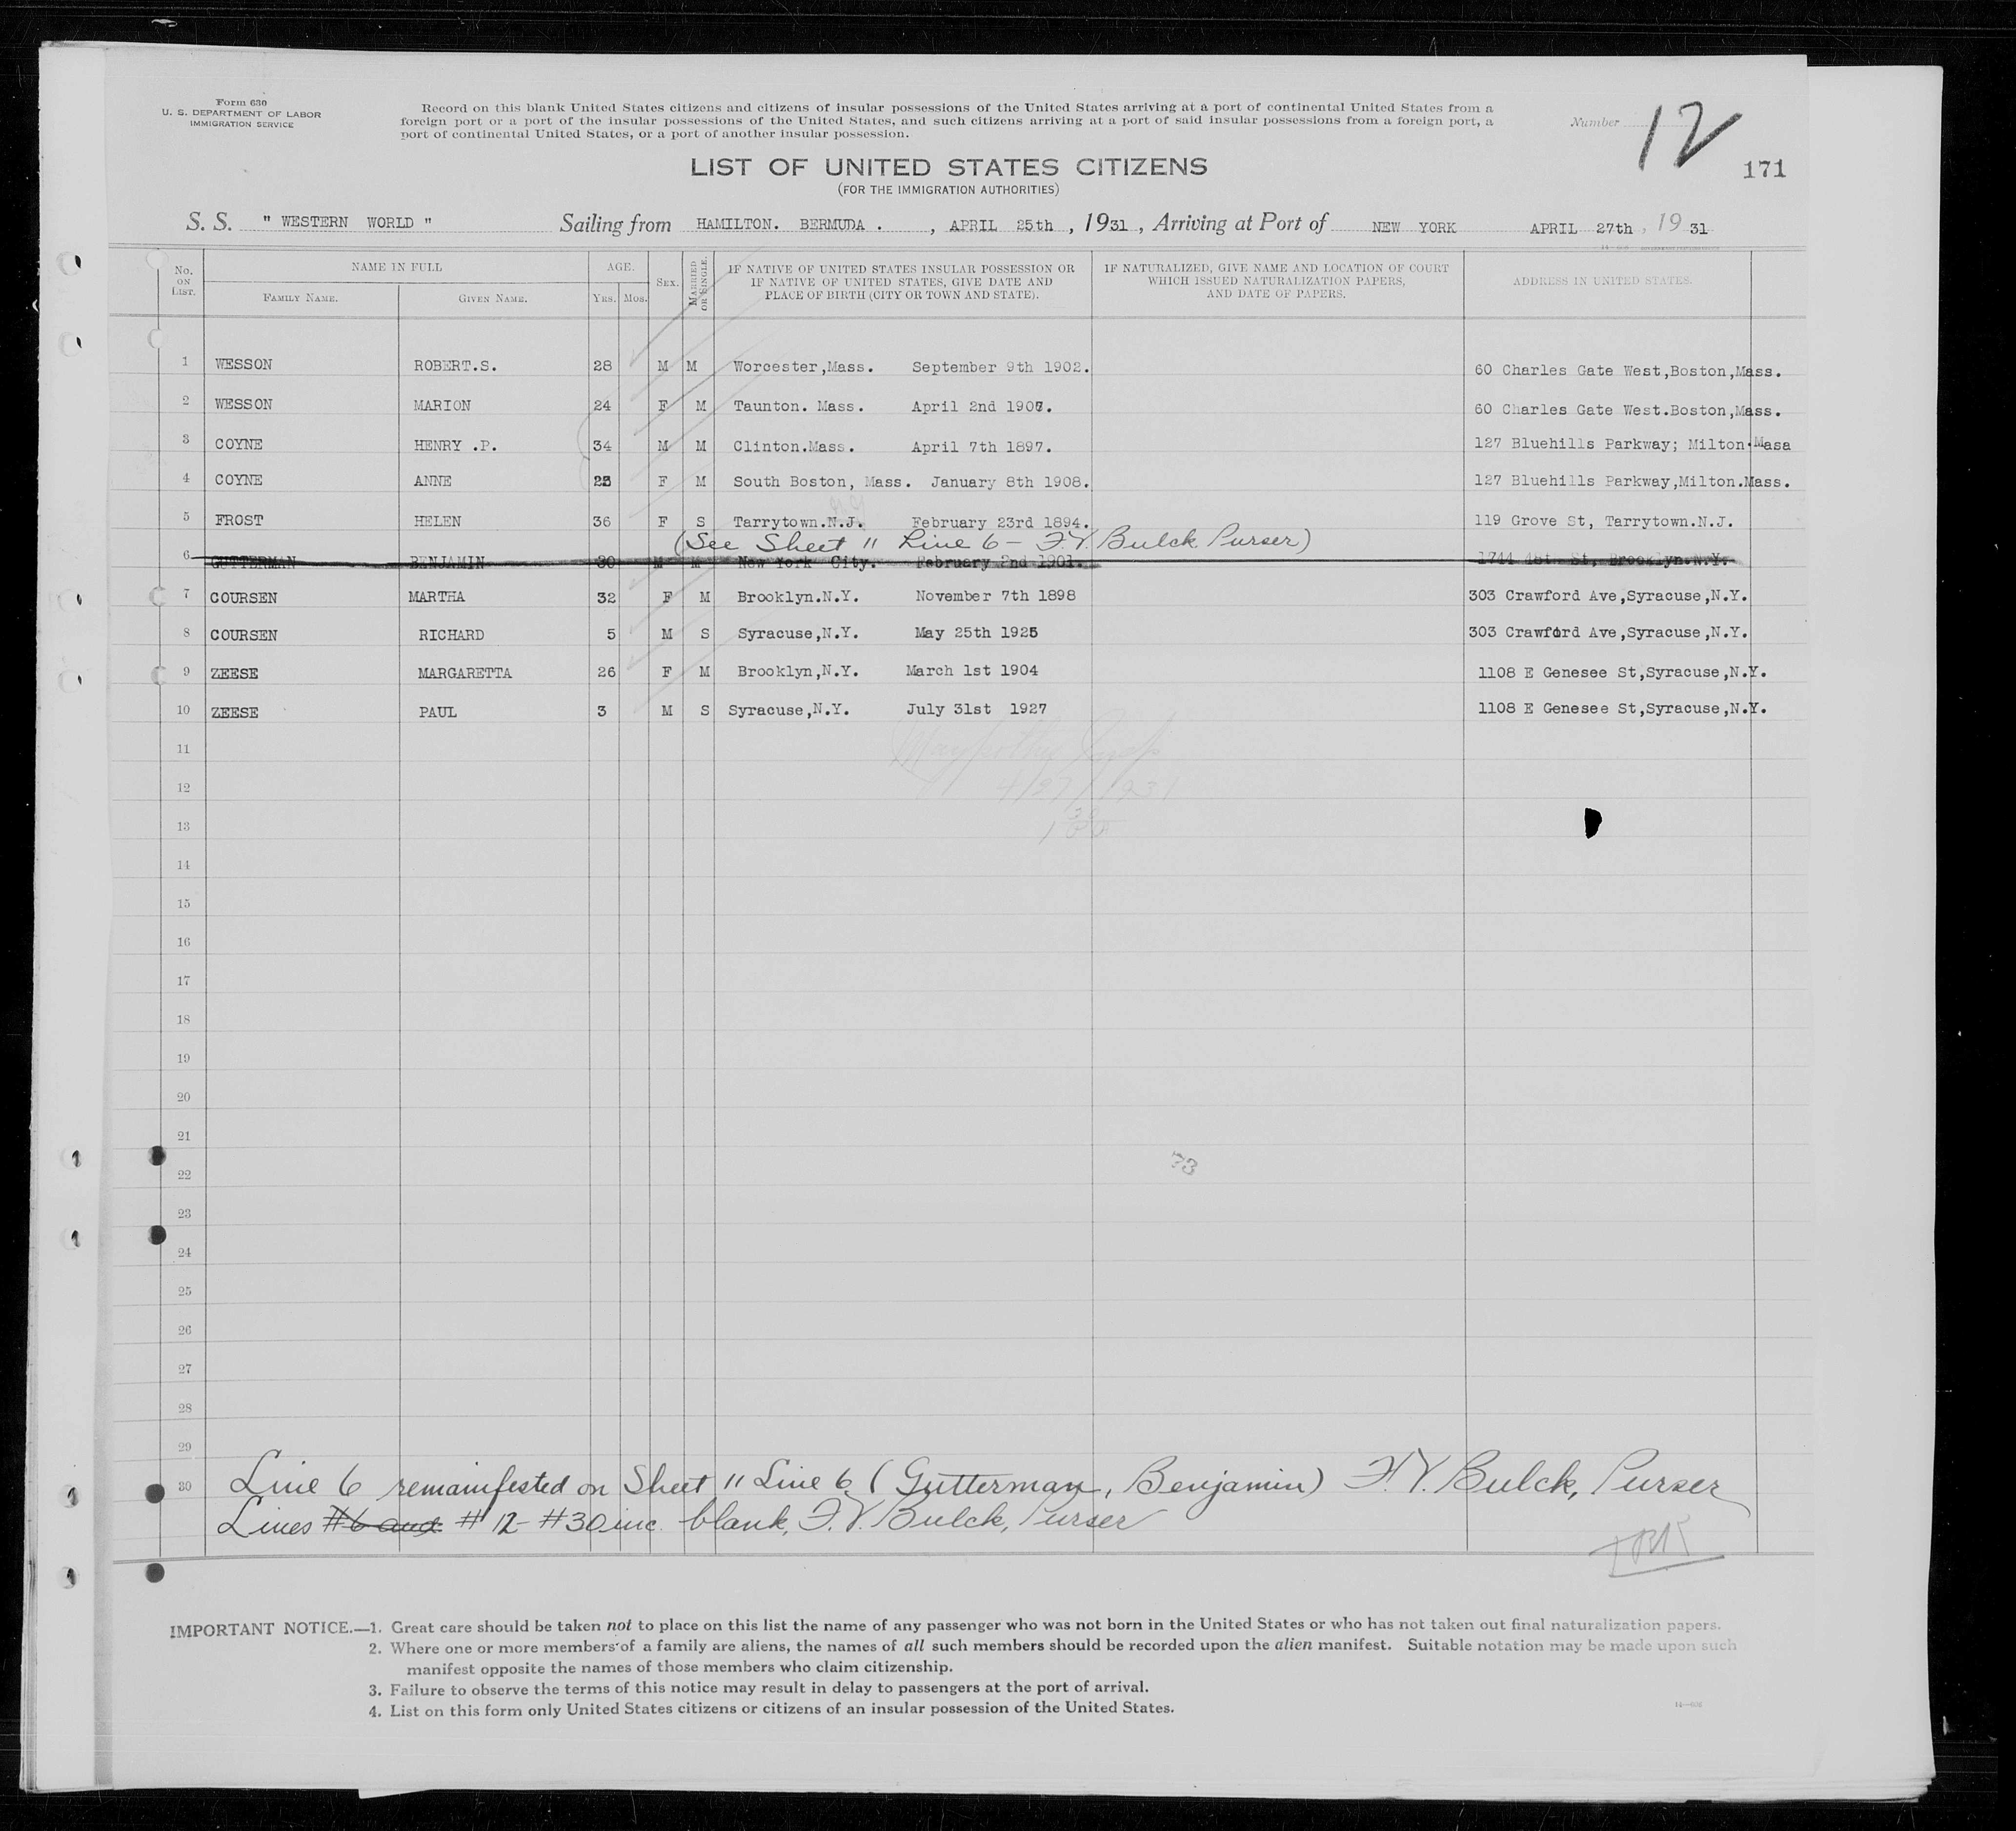 Form 630
U. S. DEPARTMENT OF LABOR
IMMIGRATION SERVICE
Record on this blank United States citizens and citizens of insular possessions of the United States arriving at a port of continental United States from a
foreign port or a port of the insular possessions of the United States, and such citizens arriving at a port of said insular possessions from a foreign port, a
port of continental United States, or a port of another insular possession.
Number 12
171
LIST OF UNITED STATES CITIZENS
(FOR THE IMMIGRATION AUTHORITIES)
S. S. " WESTERN WORLD " Sailing from HAMILTON. BERMUDA . , APRIL 25th , 1931 , Arriving at Port of NEW YORK APRIL 27th , 19 31
No. ON LIST. NAME IN FULL FAMILY NAME. GIVEN NAME. AGE. YRS. MOS. SEX. MARRIED OR SINGLE. IF NATIVE OF UNITED STATES INSULAR POSSESSION OR IF NATIVE OF UNITED STATES, GIVE DATE AND PLACE OF BIRTH (CITY OR TOWN AND STATE). IF NATURALIZED, GIVE NAME AND LOCATION OF COURT WHICH ISSUED NATURALIZATION PAPERS, AND DATE OF PAPERS. ADDRESS IN UNITED STATES.
1 WESSON ROBERT.S. 28 M M Worcester,Mass. September 9th 1902. 60 Charles Gate West,Boston,Mass.
2 WESSON MARION 24 F M Taunton. Mass. April 2nd 1907. 60 Charles Gate West.Boston,Mass.
3 COYNE HENRY .P. 34 M M Clinton.Mass. April 7th 1897. 127 Bluehills Parkway; Milton.Masa
4 COYNE ANNE F M South Boston, Mass. January 8th 1908. 127 Bluehills Parkway,Milton.Mass.
5 FROST HELEN 36 F S Tarrytown.N.J. February 23rd 1894. 119 Grove St, Tarrytown.N.J.
(See Sheet 11 Line 6 - F.V. Bulck Purser)
6 GUTTERMAN BENJAMIN 30 M M New York City. February 2nd 1901. 1744 St, Brooklyn.N.Y.
7 COURSEN MARTHA 32 F M Brooklyn.N.Y. November 7th 1898 303 Crawford Ave,Syracuse,N.Y.
8 COURSEN RICHARD 5 M S Syracuse,N.Y. May 25th 1925 303 Crawford Ave,Syracuse,N.Y.
9 ZEESE MARGARETTA 26 F M Brooklyn,N.Y. March 1st 1904 1108 E Genesee St,Syracuse,N.Y.
10 ZEESE PAUL 3 M S Syracuse,N.Y. July 31st 1927 1108 E Genesee St,Syracuse,N.Y.
11
12 4/27/1931
13
14
15
16
17
18
19
20
21
22
23
24
25
26
27
28
29
30 Line 6 remanifested on Sheet 11 Line 6 (Gutterman, Benjamin) F.V. Bulck, Purser
Lines #6 and #12-#30 inc. blank, F.V. Bulck, Purser
IMPORTANT NOTICE.—1. Great care should be taken not to place on this list the name of any passenger who was not born in the United States or who has not taken out final naturalization papers.
2. Where one or more members of a family are aliens, the names of all such members should be recorded upon the alien manifest. Suitable notation may be made upon such
manifest opposite the names of those members who claim citizenship.
3. Failure to observe the terms of this notice may result in delay to passengers at the port of arrival.
4. List on this form only United States citizens or citizens of an insular possession of the United States.